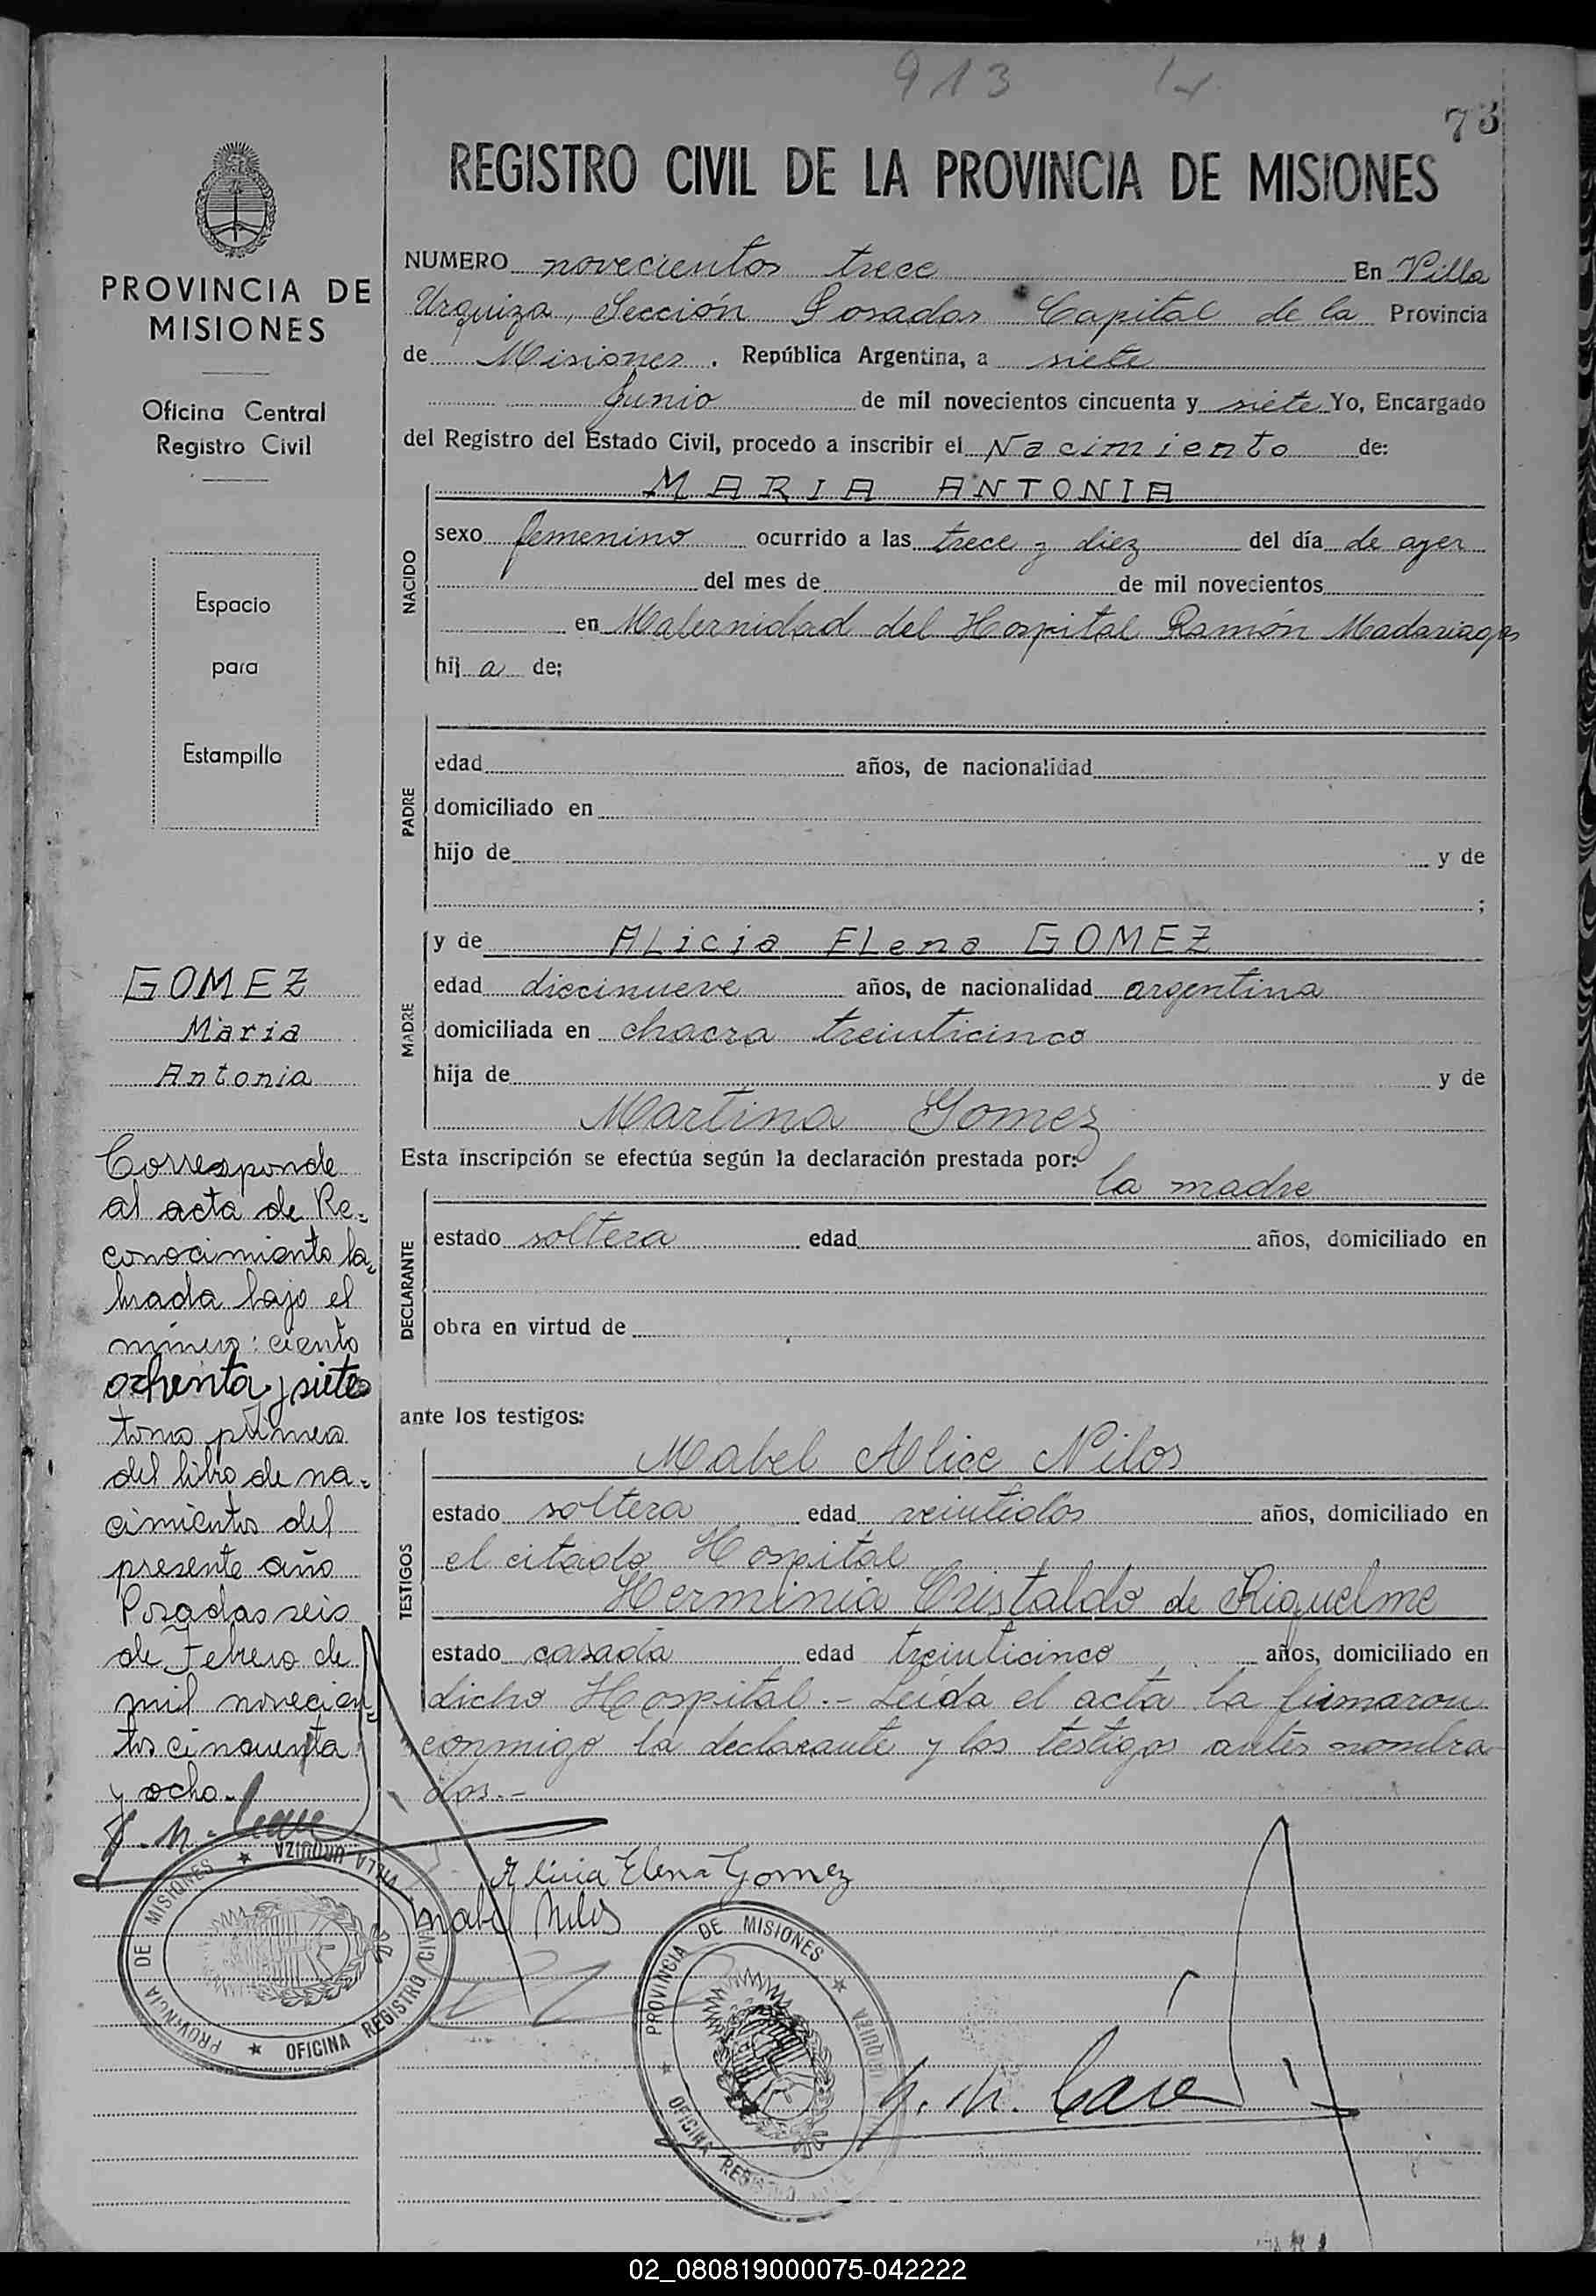 913
73
REGISTRO CIVIL DE LA PROVINCIA DE MISIONES
PROVINCIA DE
MISIONES
Oficina Central
Registro Civil
Espacio
para
Estampilla
GOMEZ
Maria
Antonia
Corresponde
al acta de Re=
conocimiento la=
brada bajo el
número: ciento
ochenta y siete
tomo primero
del libro de na=
cimientos del
presente año
Posadas seis
de Febrero de
mil novecien=
tos cincuenta
y ocho.-
NUMERO novecientos trece En Villa
Urquiza, Sección Posadas Capital de la Provincia
de Misiones. República Argentina, a siete
Junio de mil novecientos cincuenta y siete Yo, Encargado
del Registro del Estado Civil, procedo a inscribir el Nacimiento de:
MARIA ANTONIA
NACIDO
sexo femenino ocurrido a las trece y diez del día de ayer
del mes de de mil novecientos
en Maternidad del Hospital Ramón Madariaga
hij a de;
PADRE
edad años, de nacionalidad
domiciliado en
hijo de y de
;
MADRE
y de ALicia ELena GOMEZ
edad diecinueve años, de nacionalidad argentina
domiciliada en chacra treinticinco
hija de y de
Martina Gomez
Esta inscripción se efectúa según la declaración prestada por:
la madre
DECLARANTE
estado soltera edad años, domiciliado en
obra en virtud de
ante los testigos:
TESTIGOS
Mabel Alice Nilos
estado soltera edad veintidos años, domiciliado en
el citado Hospital
Herminia Cristaldo de Riquelme
estado casada edad treinticinco años, domiciliado en
dicho Hospital.- Leída el acta la firmaron
conmigo la declarante y los testigos antes nombra
dos.-
Alicia Elena Gomez
Mabel Nilos
PROVINCIA DE MISIONES ★ VILLA URQUIZA
★ OFICINA REGISTRO CIVIL
PROVINCIA DE MISIONES ★ URQUIZA
★ OFICINA REGISTRO
02_080819000075-042222